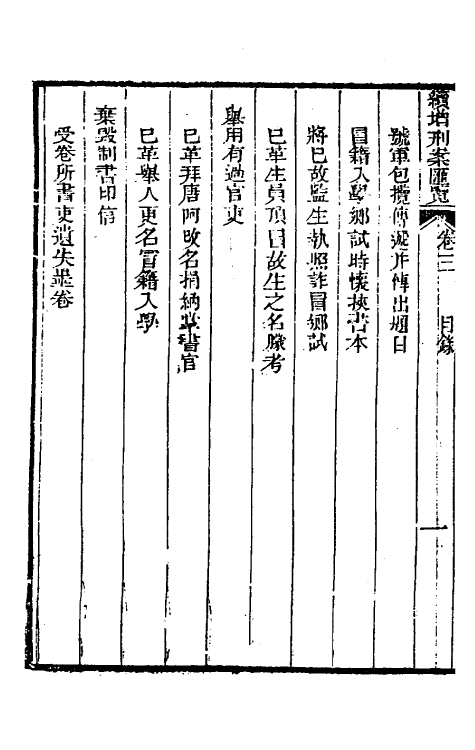 續增刑案匯覽 卷三 目錄 一
號軍包攬傳遞并傳出題目
冒籍入學鄉試時懷挾書本
將已故監生執照詐冒鄉試
已革生員頂冒故生之名朦考
舉用有過官吏
已革拜唐阿改名捐納掌書官
已革舉人更名冒籍入學
棄毀制書印信
受卷所書吏遺失墨卷